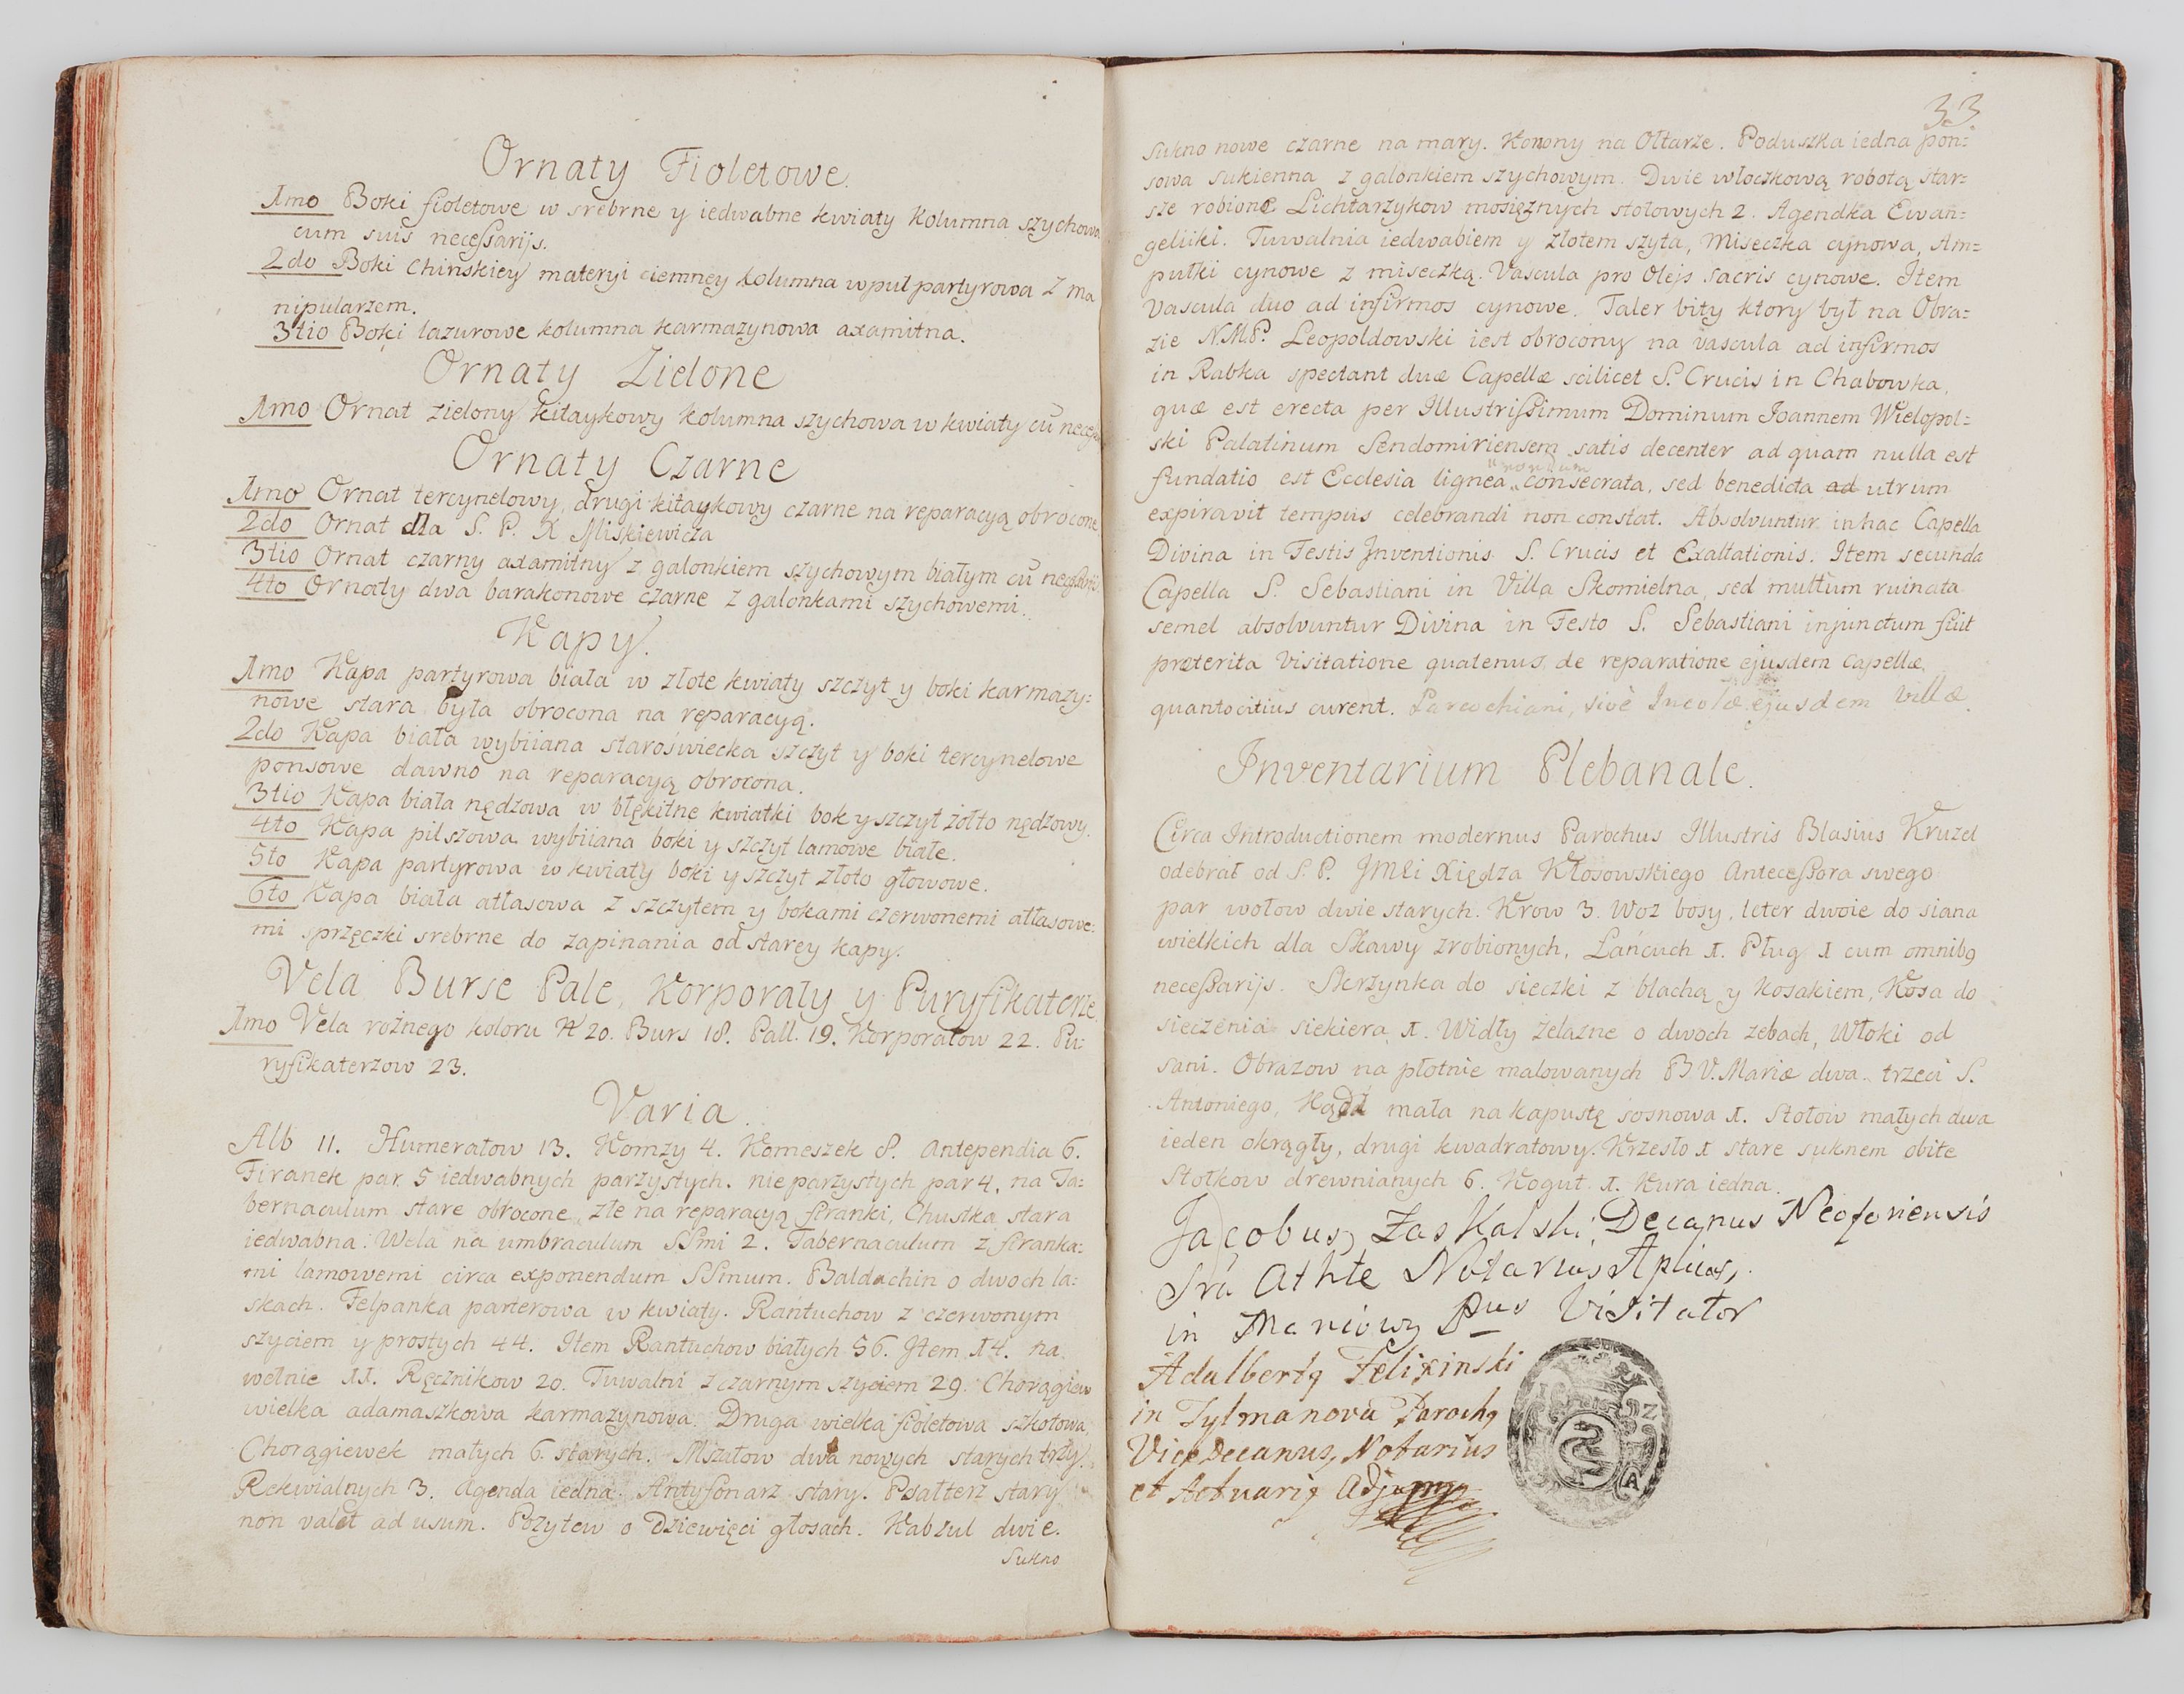 Ornaty Fioletowe.
1mo Boki fioletowe w srebrne y iedwabne kwiaty kolumna szychowa
cum suis necessarijs.
2do Boki Chinskiey materyi ciemney kolumna wpuł partyrowa z ma
nipularzem.
3tio Boki lazurowe kolumna karmazynowa axamitna.
Ornaty Zielone
1mo Ornat zielony kitaykowy kolumna szychowa w kwiaty cū
Ornaty Czarne
1mo Ornat tercynelowy, drugi kitaykowy czarne na reparacyą obrocone
2do Ornat dla S. P. X Miskiewicza
3tio Ornat czarny axamitny z galonkiem szychowym białym cū
4to Ornaty dwa barakonowe czarne z galonkami szychowemi.
Kapy.
1mo Kapa partyrowa biała w złote kwiaty szczyt y boki karmazy:
nowe stara była obrocona na reparacyą.
2do Kapa biała wybiiana staroświecka szczyt y boki tercynelowe
ponsowe dawno na reparacyą obrocona.
3tio Kapa biała nędzowa w błękitne kwiatki bok y szczyt żołto nędzowy.
4to Kapa pilszowa wybiiana boki y szczyt lamowe białe.
5to Kapa partyrowa w kwiaty boki y szczyt złoto głowowe.
6to Kapa biała atłasowa z szczytem y bokami czerwonemi atłasowe:
mi sprzęczki srebrne do zapinania od starey kapy.
Vela Burse Pale, Korporały y Puryfikaterze.
1mo Vela rożnego koloru N 20. Burs 18. Pall. 19. Korporałow 22. Pu:
ryfikaterzow 23.
Varia
Alb 11. Humerałow 13. Komzy 4. Komeszek 8. Antependia 6.
Firanek par 5 iedwabnych parzystych. nie parzystych par 4, na Ta:
bernaculum stare obrocone, złe na reparacyą firanki, Chustka stara
iedwabna. Wela na umbraculum SSmi 2. Tabernaculum z firanka:
mi lamowemi circa exponendum SSmum. Baldachin o dwoch la:
skach. Felpanka parterowa w kwiaty. Rańtuchow z czerwonym
szyciem y prostych 44. Item Rantuchow białych 56. Item 14. na
wełnie 11. Ręcznikow 20. Tuwalni z czarnym szyciem 29. Chorągiew
wielka adamaszkowa karmazynowa. Druga wielka fioletowa szkotowa,
Chorągiewek małych 6. starych. Mszałow dwa nowych starych trzy.
Rekwialnych 3. Agenda iedna. Antyfonarz stary. Psałterz stary
non valet ad usum. Pozytew o Dziewięci głosach. Kabzul dwie.
Sukno
33
sukno nowe czarne na mary. Konony na Ołtarze. Poduszka iedna pon:
sowa sukienna z galonkiem szychowym. Dwie włoczkową robotą star:
sze robione. Lichtarzykow mosiężnych stołowych 2. Agendka Ewan:
geliiki. Tuwalnia iedwabiem y złotem szyta, Miseczka cynowa, Am=
pułki cynowe z miseczką. Vascula pro Olejs sacris cynowe. Item
Vascula duo ad infirmos cynowe. Taler bity ktory był na Obra=
zie N.M.P. Leopoldowski iest obrocony na vascula ad infirmos
in Rabka spectant duæ Capellæ scilicet S. Crucis in Chabowka,
quæ est erecta per Illustrissimum Dominum Joannem Wielopol=
ski Palatinum Sendomiriensem satis decenter ad quam nulla est
nondum
fundatio est Ecclesia lignea consecrata, sed benedicta ad utrum
expiravit tempus celebrandi non constat. Absolvuntur in hac Capella
Divina in Festis Inventionis S. Crucis et Exaltationis. Item secunda
Capella S. Sebastiani in Villa Skomielna, sed multum ruinata
semel absolvuntur Divina in Festo S. Sebastiani injunctum fuit
præterita Visitatione quatenus, de reparatione ejusdem Capellæ,
quantocitius curent. Parochiani, sive Incolæ ejusdem Villæ.
Inventarium Plebanale.
Circa Introductionem modernus Parochus Illustris Blasius Kruzel
odebrał od S. P. JMCi Xiędza Kłosowskiego Antecessora swego
par wołow dwie starych. Krow 3. Woz bosy, leter dwoie do siana
wielkich dla Skawy zrobionych, Łańcuch 1. Pług 1 cum omnibq
necessarijs. Skrzynka do sieczki z blachą y kosakiem, Kosa do
sieczenia siekiera 1. Widły żelazne o dwoch zebach, Włoki od
sani. Obrazow na płotnie malowanych B V. Mariæ dwa. trzeci S.
Antoniego, Kądź mała na kapustę sosnowa 1. Stołow małych dwa
ieden okrągły, drugi kwadratowy. Krzesło 1 stare suknem obite
Stołkow drewnianych 6. Kogut 1. Kura iedna.
Jacobus Zaskalski, Decanus Neoforiensis
Notarius
in Maniowy Visitator
Adalbertq Felixinski
in Tylmanova Parochq
Vice Decanus, Notarius
et Actuariq
Z
A